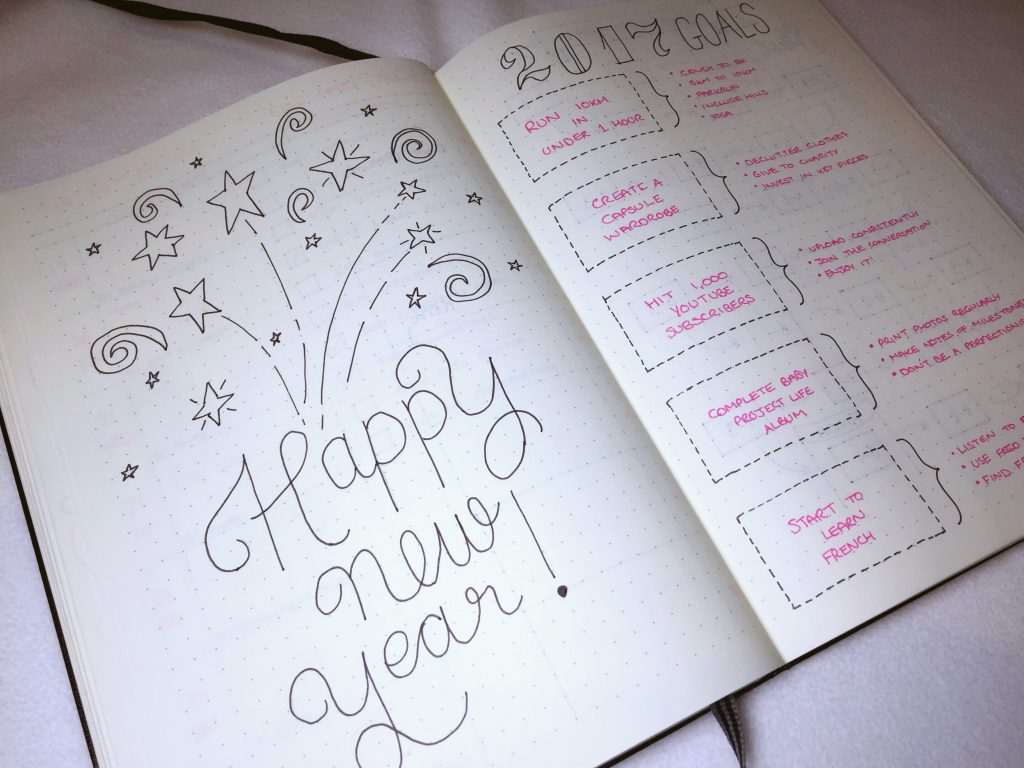 Happy
new
year!
2017 GOALS
RUN 10KM
IN
UNDER 1 HOUR
• COUCH TO 5K
• 5KM TO 10KM
• PARKRUN
• INCLUDE HILLS
• YOGA
CREATE A
CAPSULE
WARDROBE
• DECLUTTER CLOTHES
• GIVE TO CHARITY
• INVEST IN KEY PIECES
HIT 1,000
YOUTUBE
SUBSCRIBERS
• UPLOAD CONSISTENTLY
• JOIN THE CONVERSATION
• ENJOY IT!
COMPLETE BABY
PROJECT LIFE
ALBUM
• PRINT PHOTOS REGULARLY
• MAKE NOTES OF MILESTONE
• DON'T BE A PERFECTIONI
START TO
LEARN
FRENCH
• LISTEN TO
• USE
• FIND